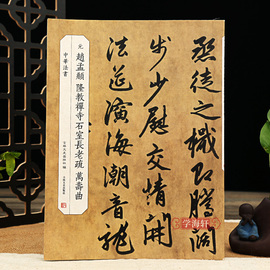 中華法書
元 趙孟頫 隆教禪寺石室長老疏 萬壽曲
烝徒之檝 聀騰洞
步少慰交情開
法筵演海潮音龍
学海轩